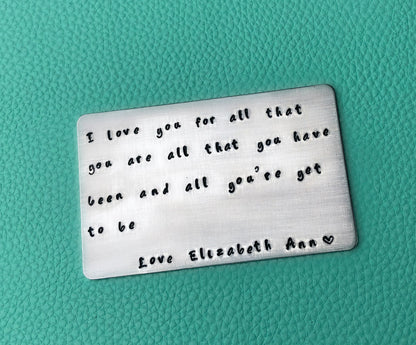 I love you for all that
you are all that you have
been and all you're yet
to be
Love Elizabeth Ann♡